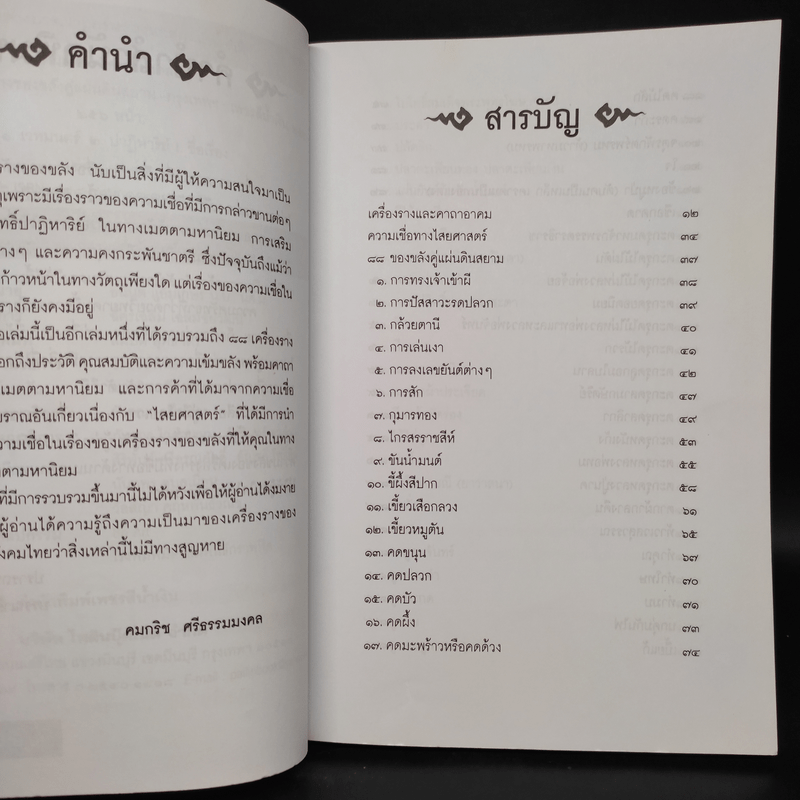 คำนำ
รางของขลัง นับเป็นสิ่งที่มีผู้ให้ความสนใจมาเป็น
ุเพราะมีเรื่องราวของความเชื่อที่มีการกล่าวขานต่อๆ
ทธิ์ปาฏิหาริย์ ในทางเมตตามหานิยม การเสริม
างๆ และความคงกระพันชาตรี ซึ่งปัจจุบันถึงแม้ว่า
ก้าวหน้าในทางวัตถุเพียงใด แต่เรื่องของความเชื่อใน
รางก็ยังคงมีอยู่
อเล่มนี้เป็นอีกเล่มหนึ่งที่ได้รวบรวมถึง ๘๘ เครื่องราง
อกถึงประวัติ คุณสมบัติและความเข้มขลัง พร้อมคาถา
เมตตามหานิยม และการค้าที่ได้มาจากความเชื่อ
บราณอันเกี่ยวเนื่องกับ "ไสยศาสตร์" ที่ได้มีการนำ
วามเชื่อในเรื่องของเครื่องรางของขลังที่ให้คุณในทาง
ตตามหานิยม
ที่มีการรวบรวมขึ้นมานี้ไม่ได้หวังเพื่อให้ผู้อ่านได้งมงาย
ผู้อ่านได้ความรู้ถึงความเป็นมาของเครื่องรางของ
ังคมไทยว่าสิ่งเหล่านี้ไม่มีทางสูญหาย
คมกริช ศรีธรรมมงคล
สารบัญ
เครื่องรางและคาถาอาคม ๑๒
ความเชื่อทางไสยศาสตร์ ๓๔
๘๘ ของขลังคู่แผ่นดินสยาม ๓๗
๑. การทรงเจ้าเข้าผี ๓๘
๒. การปัสสาวะรดปลวก ๓๙
๓. กล้วยตานี ๔๐
๔. การเล่นเงา ๔๑
๕. การลงเลขยันต์ต่างๆ ๔๒
๖. การสัก ๔๗
๗. กุมารทอง ๔๙
๘. ไกรสรราชสีห์ ๕๓
๙. ขันน้ำมนต์ ๕๕
๑๐. ขี้ผึ้งสีปาก ๕๘
๑๑. เขี้ยวเสือกลวง ๖๑
๑๒. เขี้ยวหมูตัน ๖๕
๑๓. คดขนุน ๖๗
๑๔. คดปลวก ๗๐
๑๕. คดบัว ๗๑
๑๖. คดผึ้ง ๗๓
๑๗. คดมะพร้าวหรือคดด้วง ๗๔